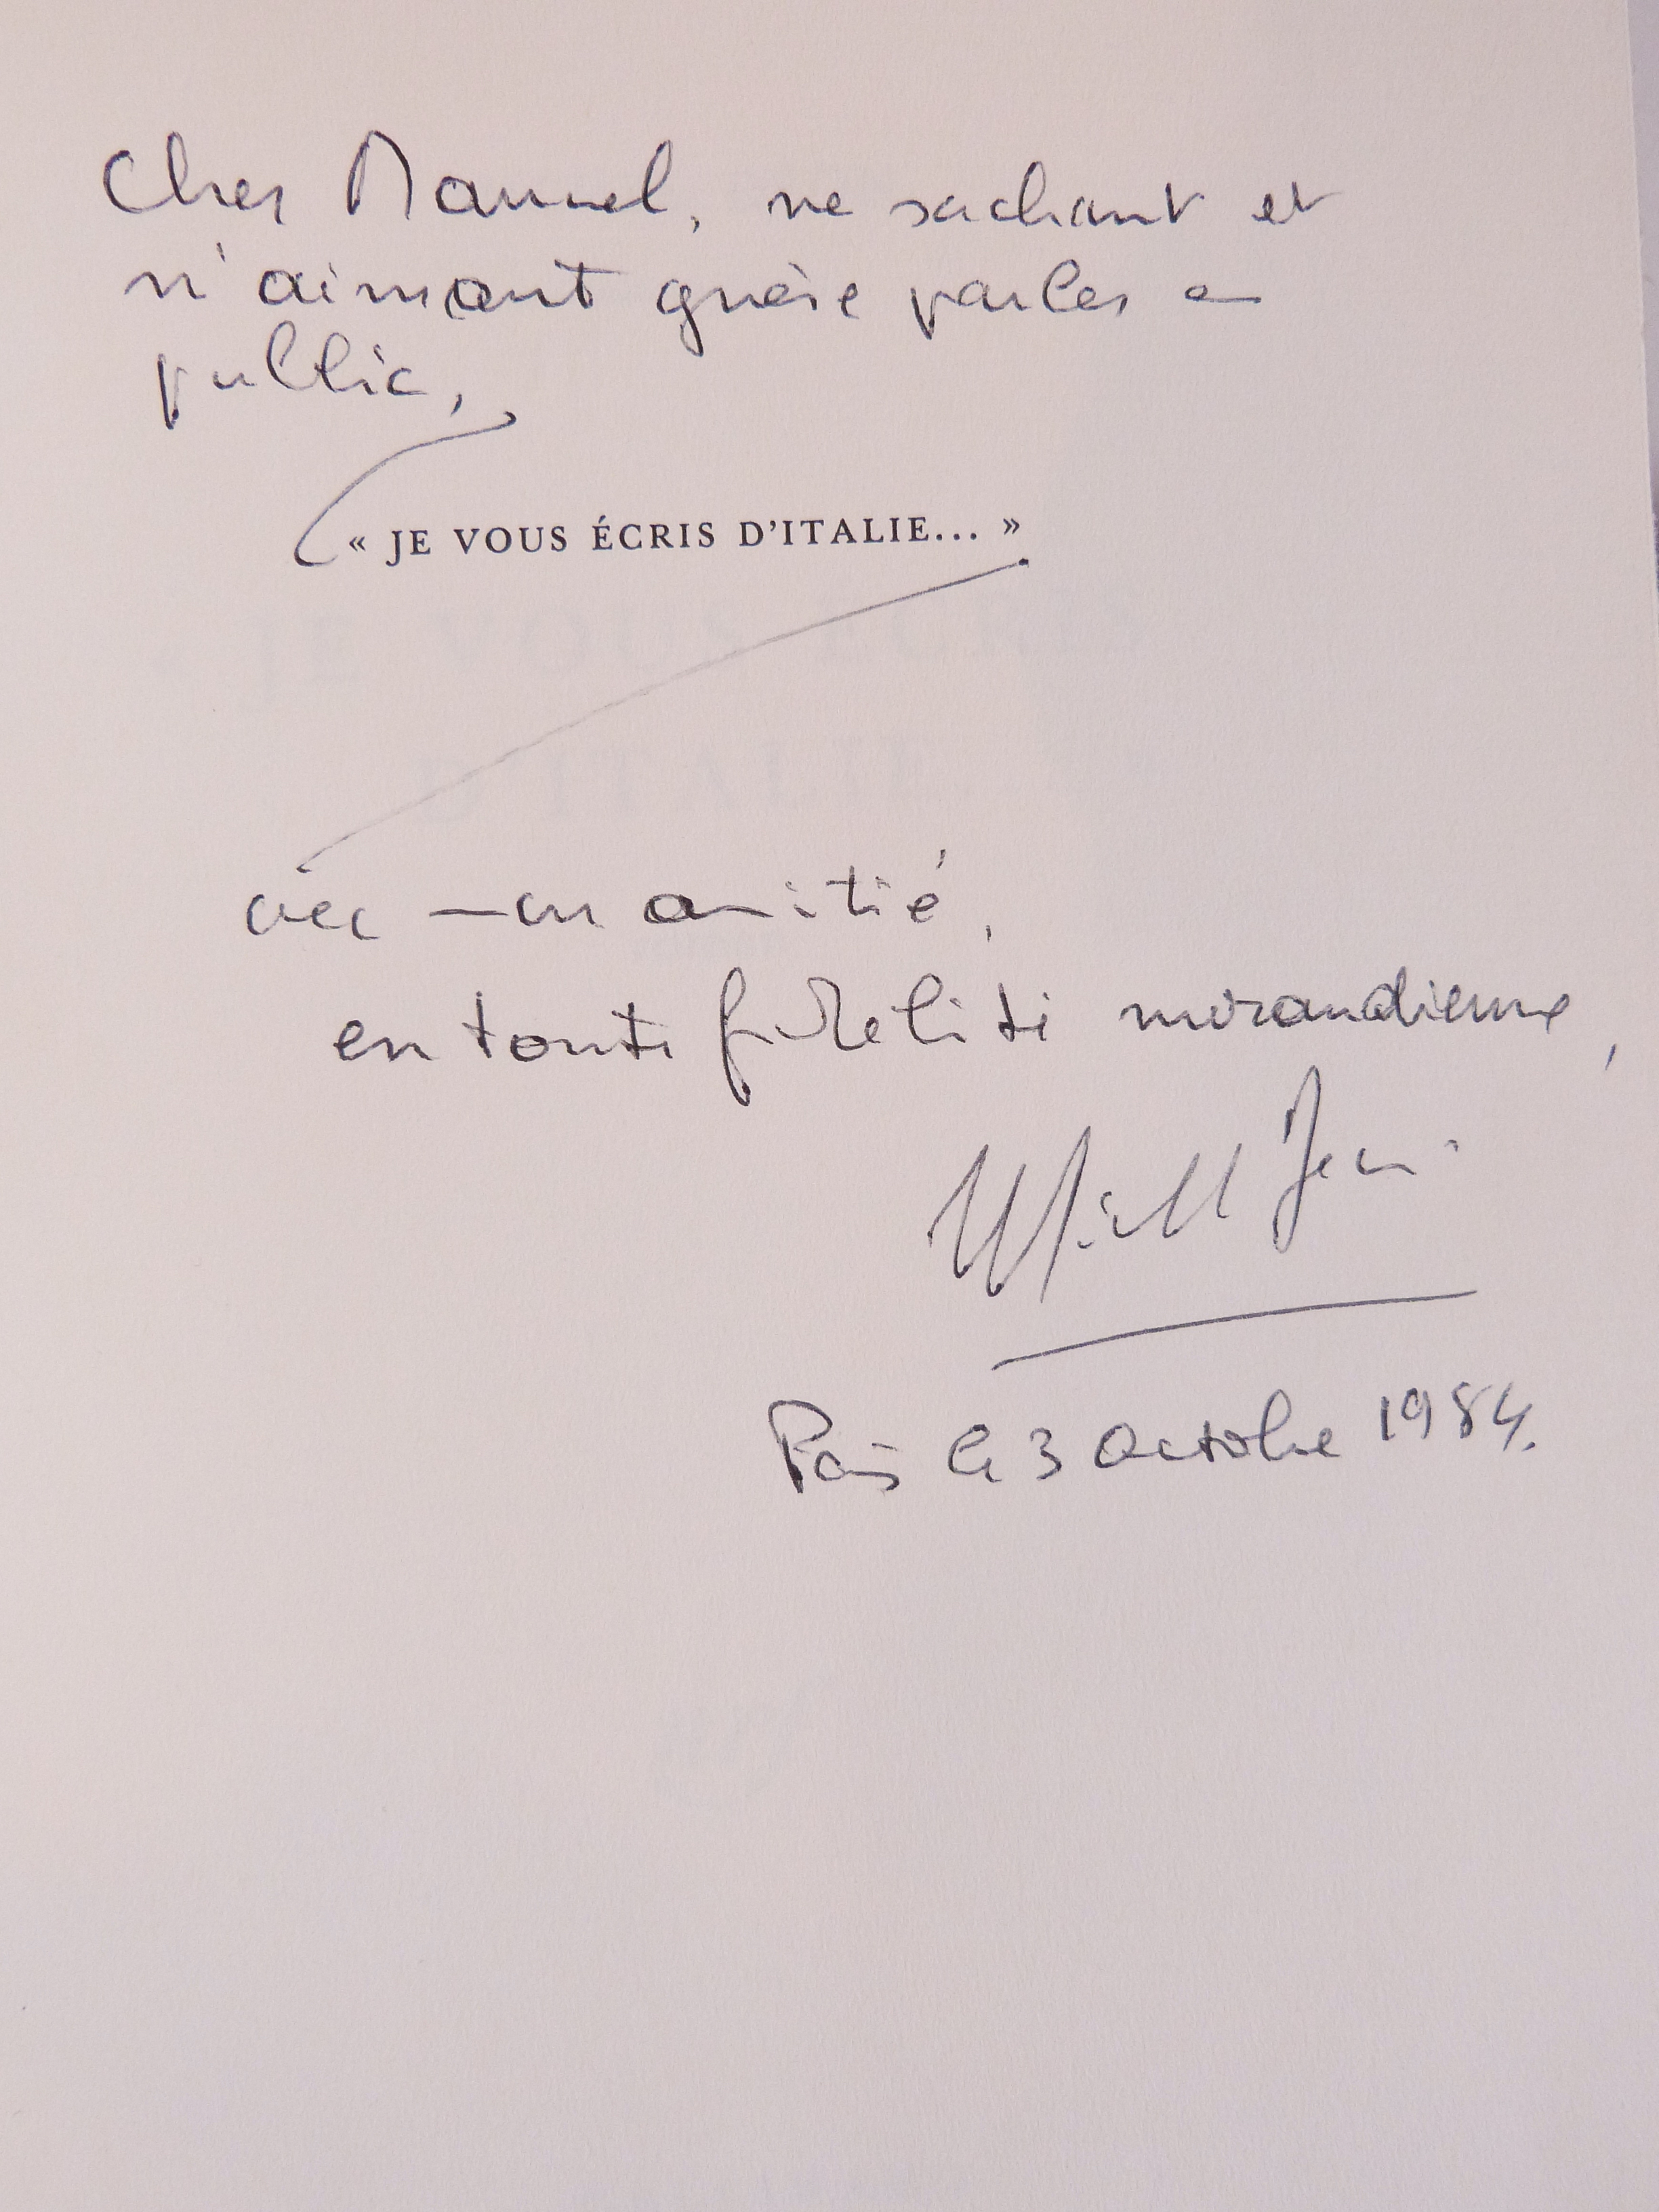 Cher Manuel, ne sachant et
n'aimant guère parler en
public,
« JE VOUS ÉCRIS D'ITALIE... »
avec mon amitié,
en toute fidélité morandienne,
Michel Déon
Paris le 3 Octobre 1984.